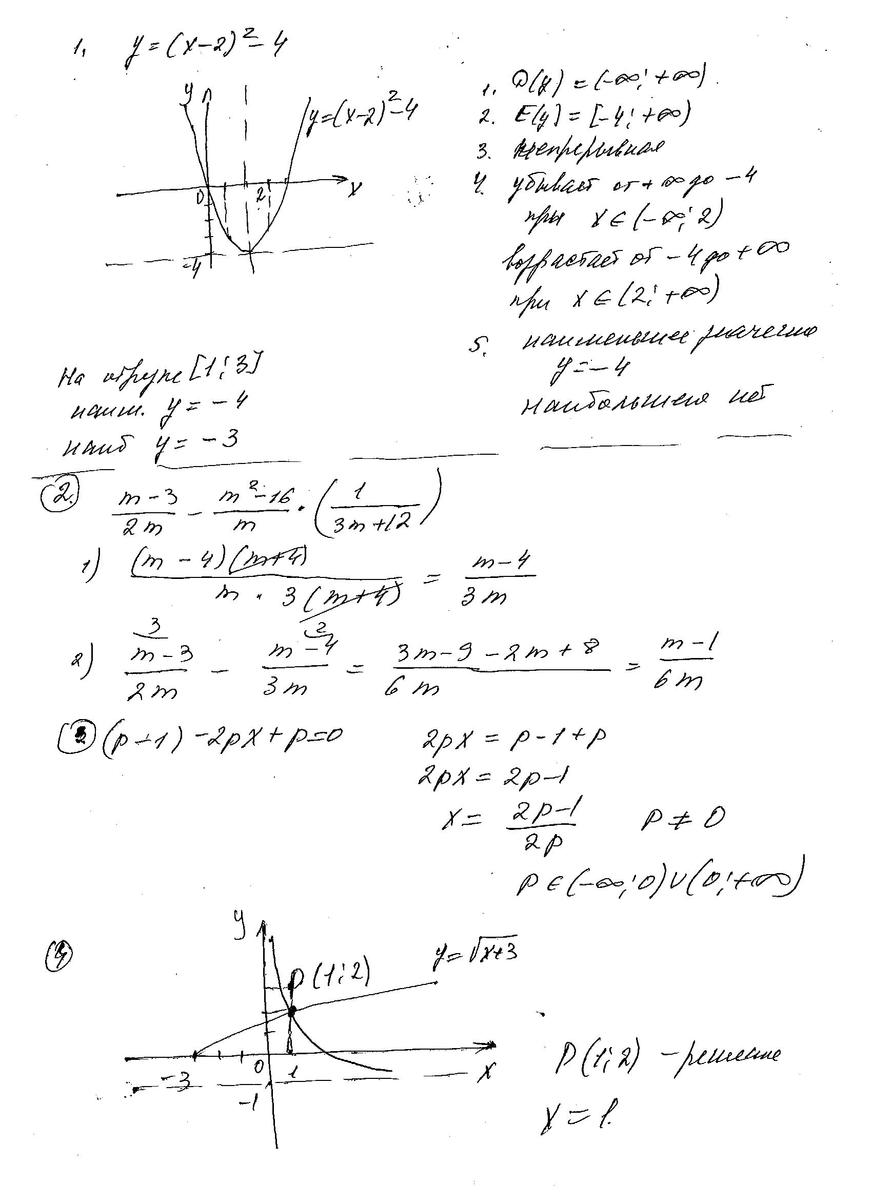 1. y = (x-2)² - 4
y
y=(x-2)²-4
0
2
x
-4
1. D(y) = (-∞; +∞)
2. E(y) = [-4; +∞)
3. непрерывная
4. убывает от +∞ до -4
при x ∈ (-∞; 2)
возрастает от -4 до +∞
при x ∈ (2; +∞)
5. наименьшее значение
y = -4
наибольшего нет
На отрезке [1; 3]
наим. y = -4
наиб y = -3
2. (m-3)/(2m) - (m²-16)/m · (1/(3m+12))
1) (m-4)(m+4)/(m · 3(m+4)) = (m-4)/(3m)
2) 3 (m-3)/(2m) - 2 (m-4)/(3m) = (3m-9-2m+8)/(6m) = (m-1)/(6m)
3 (p-1) -2px + p = 0
2px = p-1+p
2px = 2p-1
x = (2p-1)/(2p) p ≠ 0
p ∈ (-∞; 0) ∪ (0; +∞)
4
y
P(1; 2)
y = √(x+3)
-3
0
1
x
-1
P(1; 2) - решение
x = 1.